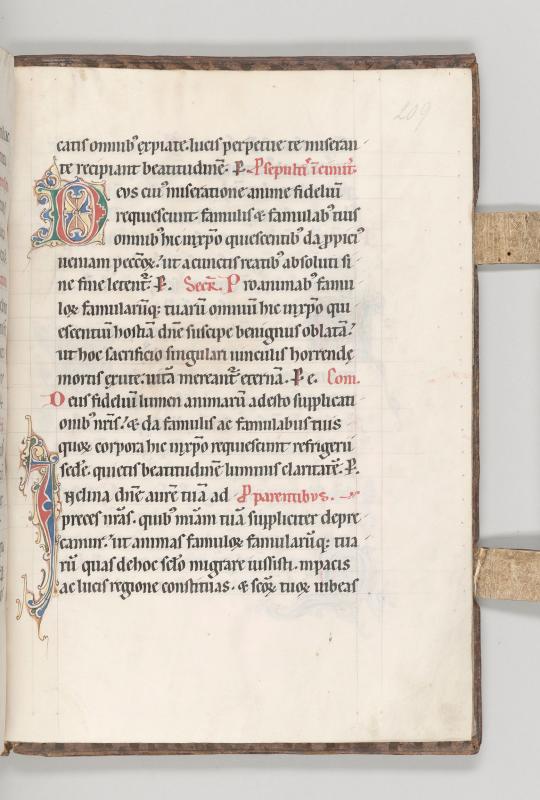 209
catis omnibꝰ expiate. lucis perpetue te miseran
te recipiant beatitudinē. P. P sepultꝰ ī cimit.
Deus cuiꝰ miseratione anime fideliū
requiescunt. famulis & famulabꝰ tuis
omnibꝰ hic in xp̄o quiescentibꝰ da p̄piciꝰ
ueniam peccꝝ. ut a cunctis reatibꝰ absoluti si
ne fine letent᷑. P. Secr̄. Pro animabꝰ famu
loꝝ famularūq; tuarū omniū hic in xp̄o qui
escentiū hostiā dn̄e suscipe benignus oblatā.
ut hoc sacrificio singulari uinculis horrende
mortis exute. uitā mereant᷑ eternā. P e. Com.
Deus fideliū lumen animarū adesto supplicati
onibꝰ nr̄is. & da famulis ac famulabus tuis
quoꝝ corpora hic in xp̄o requiescunt refrigerii
sedē. quietis beatitudinē luminis claritatē. P.
Inclina dn̄e aurē tuā ad P parentibus.
preces nr̄as. quibꝰ mīam tuā suppliciter depre
camur. ut animas famuloꝝ famularūq; tua
rū quas de hoc sc̄lo migrare iussisti. in pacis
ac lucis regione constituas. & sc̄oꝝ tuoꝝ iubeas